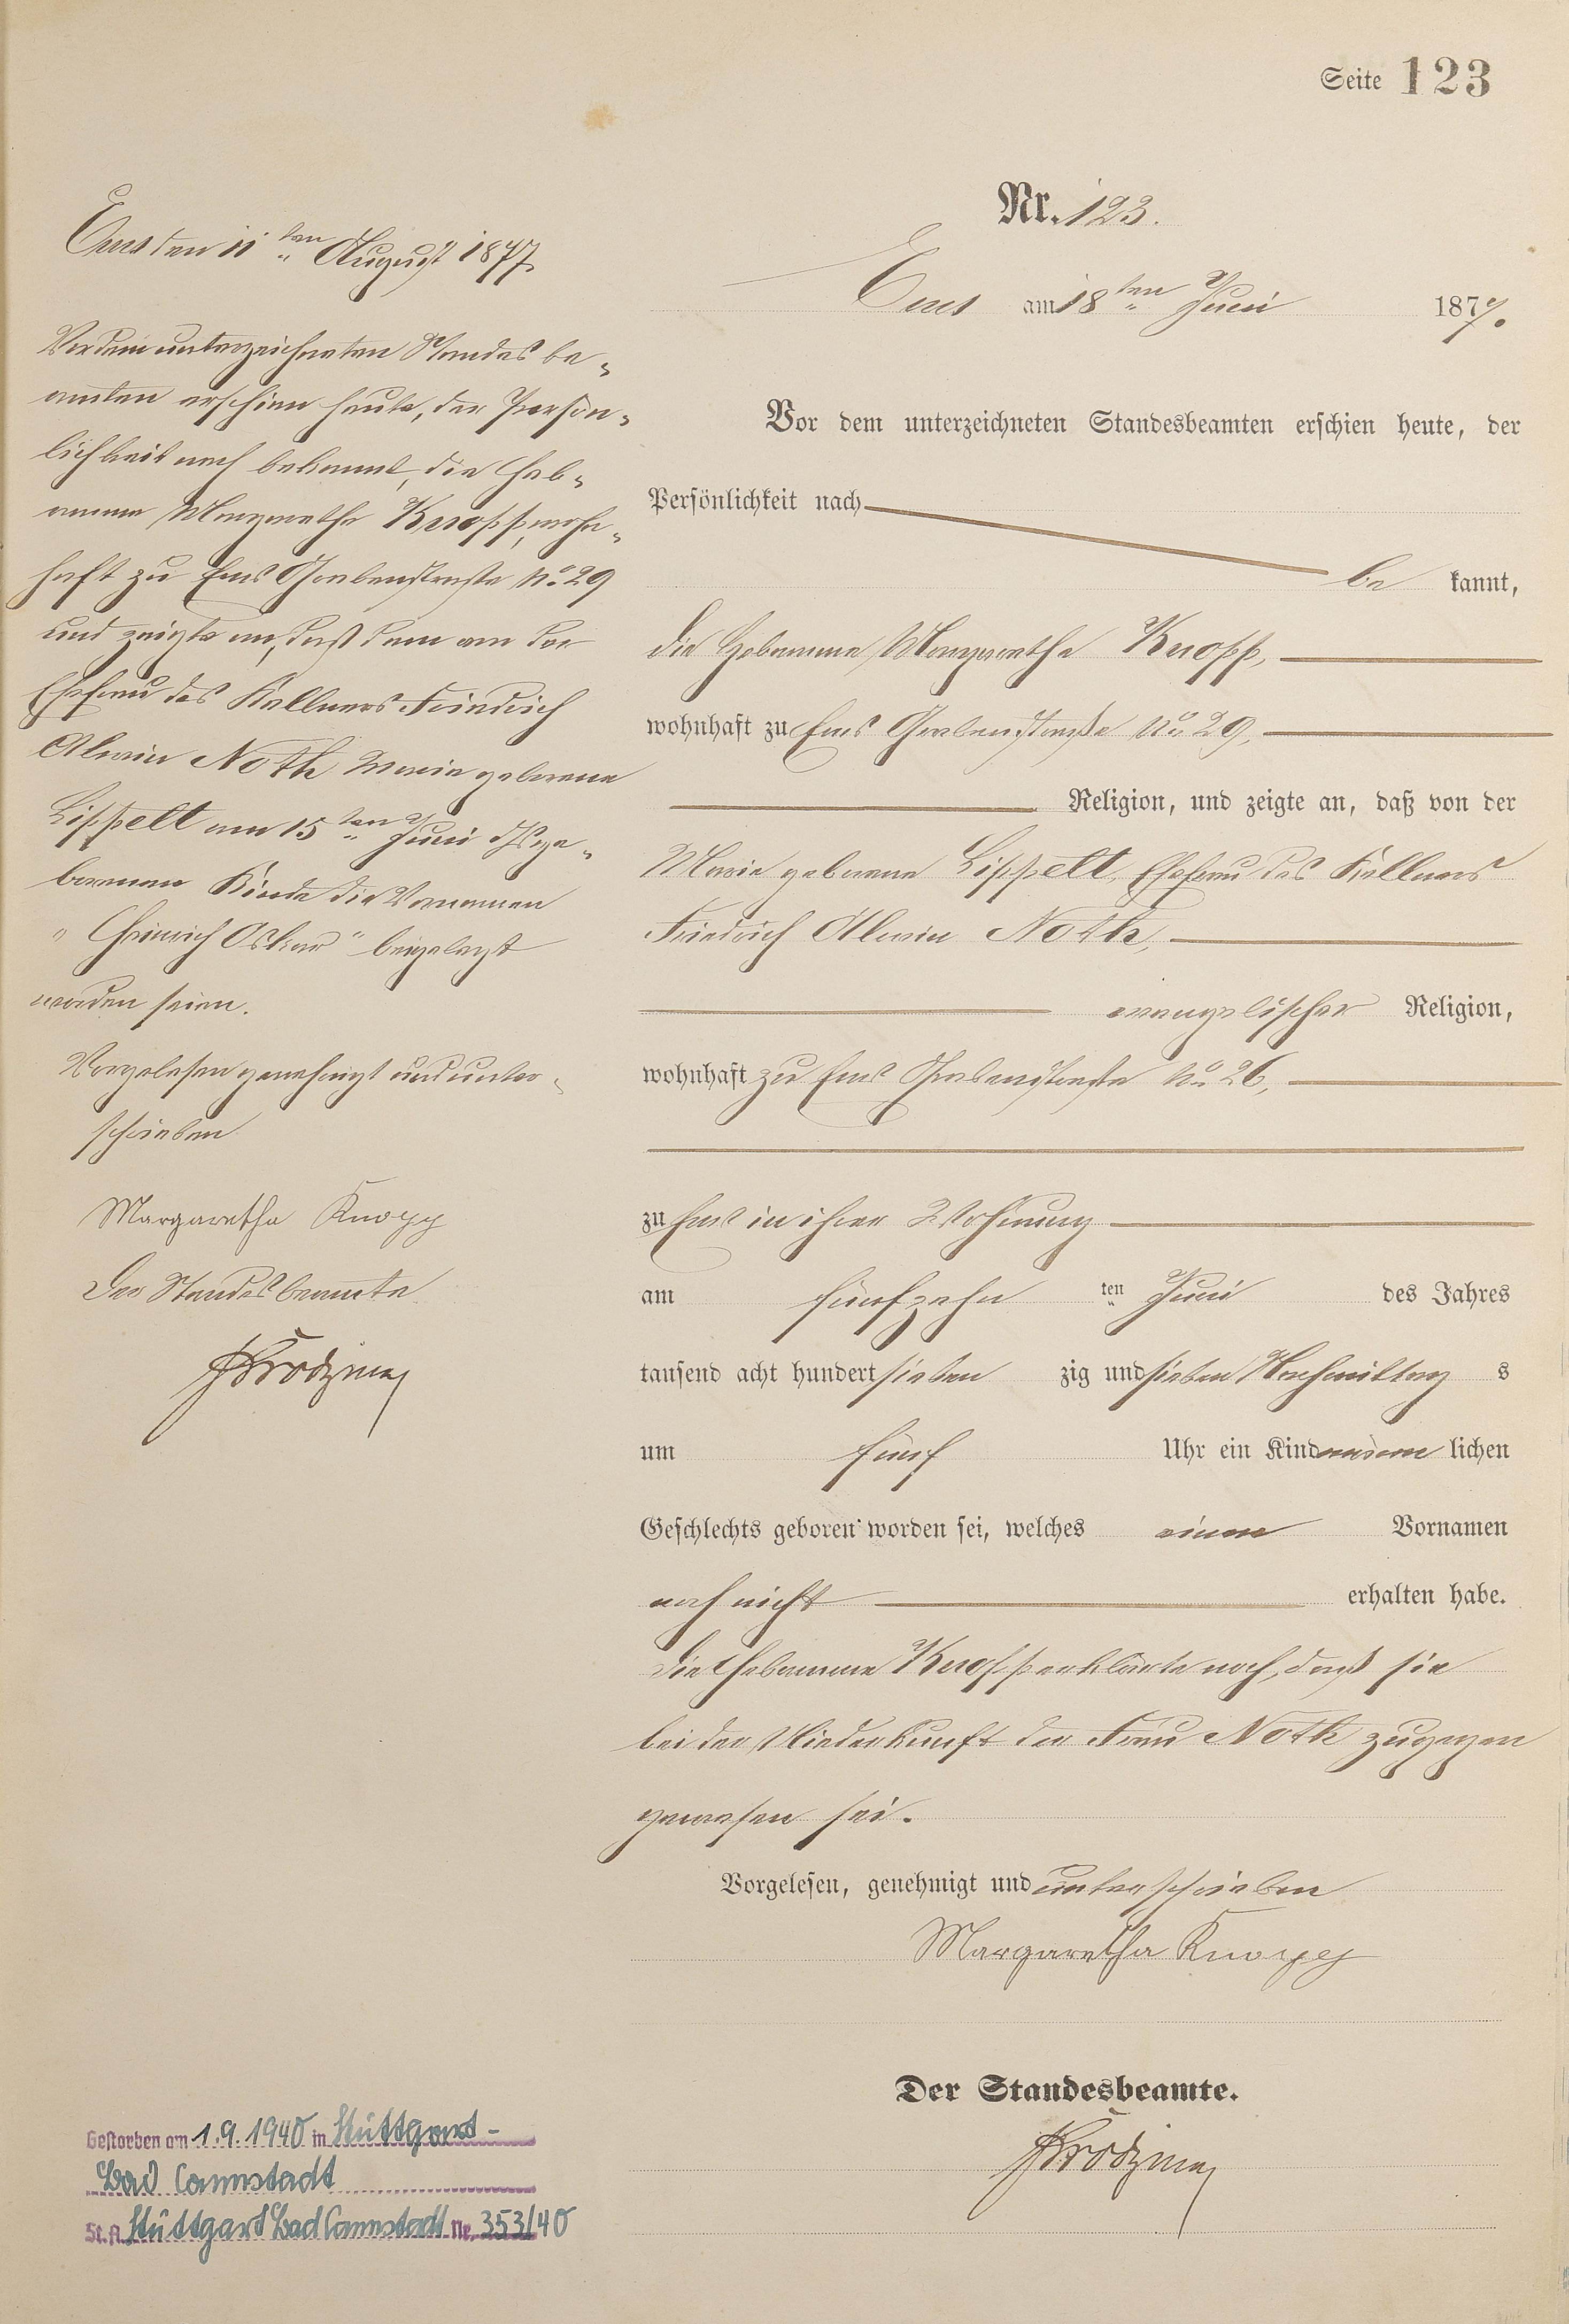 Seite 123
Nr. 123.
Ems am 18ten Juni 1877.
Vor dem unterzeichneten Standesbeamten erschien heute, der
Persönlichkeit nach
be kannt,
die Hebamme Margarethe Knopp,
wohnhaft zu Ems Grabenstraße No 29,
Religion, und zeigte an, daß von der
Marie geborene Lippelt, Ehefrau des Kellners
Friedrich Alwin Noth,
evangelischer Religion,
wohnhaft zu Ems Grabenstraße No 26,
zu Ems in ihrer Wohnung
am fünfzehn ten Juni des Jahres
tausend acht hundert sieben zig und sieben Nachmittag s
um fünf Uhr ein Kind männ lichen
Geschlechts geboren worden sei, welches einen Vornamen
noch nicht erhalten habe.
Die Hebamme Knopp erklärte noch, daß sie
bei der Niederkunft der Frau Noth zugegen
gewesen sei.
Vorgelesen, genehmigt und unterschrieben
Margaretha Knopp
Der Standesbeamte.
Ems den 11ten August 1877
Vor dem unterzeichneten Standesbe-
amten erschien heute, der Persön-
lichkeit nach bekannt, die Heb-
amme Margarethe Knopp, wohn-
haft zu Ems Grabenstraße No 29
und zeigte an, daß dem von der
Ehefrau des Kellners Friedrich
Alwin Noth Marie geborene
Lippelt am 15ten Juni ds ge-
borenen Kinde die Vornamen
"Heinrich Oskar" beigelegt
worden seien.
Vorgelesen genehmigt und unter-
schrieben
Margaretha Knopp
Der Standesbeamte
Gestorben am 1.9.1940 in Stuttgart-
Bad Cannstadt
St.A. Stuttgart Bad Cannstadt Nr. 353/40